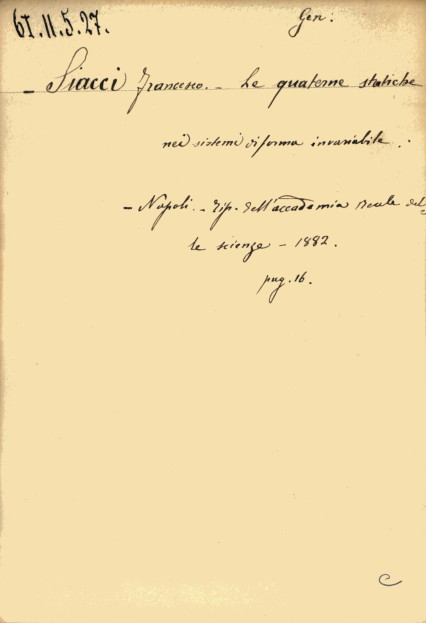 61.11.5.27.
Gen:
- Siacci Francesco. - Le quaterne statiche
nei sistemi di forma invariabile.
- Napoli. - Tip. dell'accademia Reale del-
le scienze - 1882.
pag. 16.
C